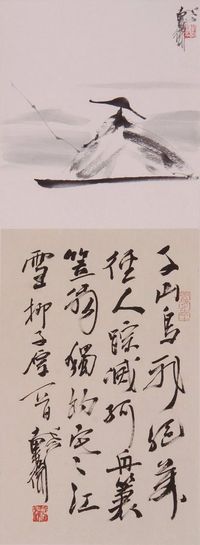 千山鳥飛絕萬
徑人踪滅孤舟蓑
笠翁獨釣寒江
雪柳子厚一首